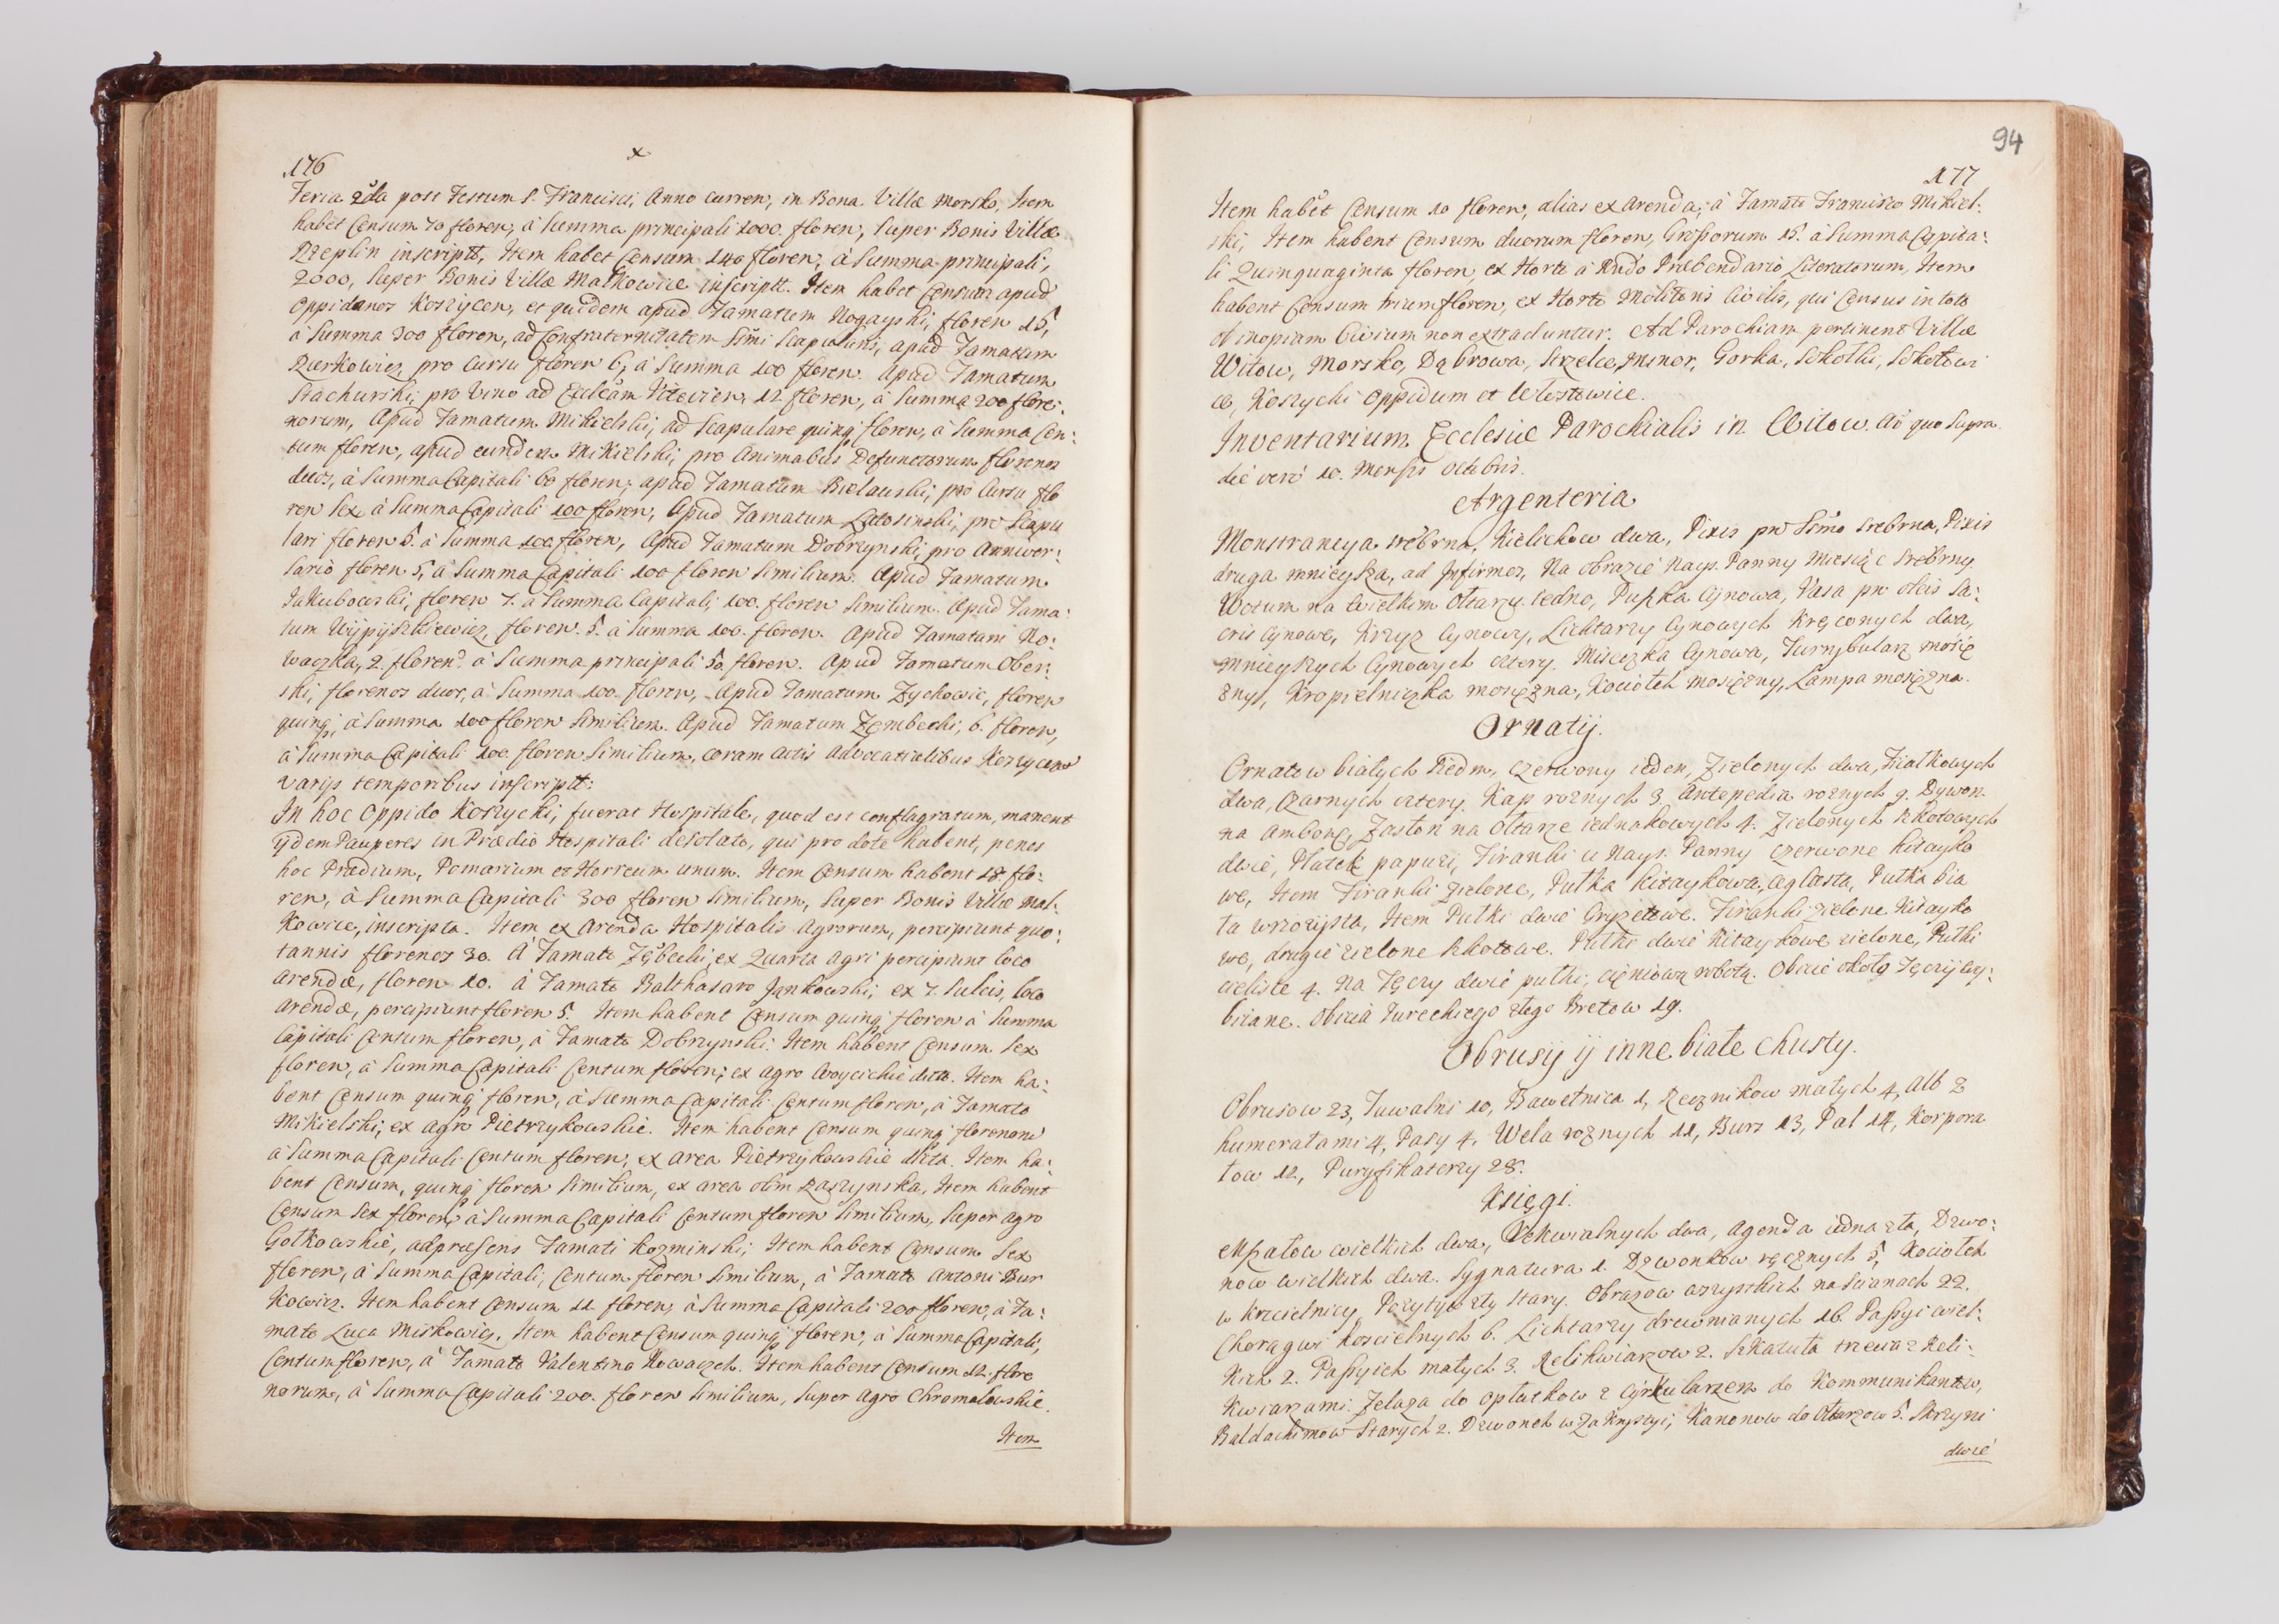 176
x
Feria 2da post Festum S. Francisci, Anno curren, in Bona Villæ Morsko, Item
habet Censum 70 floren, à Summa principali 1000. floren, Super Bonis Villæ
Przeplin inscriptt, Item habet Censum 140 floren, à Summa principali,
2000, Super Bonis Villæ Malkowice inscriptt. Item habet Censum apud
Oppidanos Koszycen, et quidem apud Famatum Nogayski, floren 15,
à Summa 300 floren, ad Confraternitatem Smi Scapularis, apud Famatum
pro Cursu floren 6, à Summa 100 floren. Apud Famatum
Stachurski, pro Vino ad Ecclesiam Vitovien, 12 floren, à Summa 200 flore:
norum, Apud Famatum Mikielski, ad Scapulare quinq floren, à Summa Cen:
tum floren, apud eunden Mikielski, pro Animabus Defunctorum florenos
duos, à Summa Capitali 60 floren, apud Famatum Bielawski, pro Cursu flo
ren Sex à Summa Capitali 100 floren, Apud Famatum Latosinski, pro Scapu
lari floren 5. à Summa 100 floren, Apud Famatum Dobrzynski, pro Anniver:
sario floren 5, à Summa Capitali 100 floren Similium. Apud Famatum
Jakubowski, floren 7. à Summa Capitali, 100. floren Similium. Apud Fama:
tum Wypijszkiewicz, floren. 5. à Summa 100. floren. Apud Famatam No:
waczka, 2. floren. à Summa principali 50. floren. Apud Famatum Ober:
ski, florenos duos, à Summa 100 floren, Apud Famatum Zychowic, floren
quinq, à Summa 100 floren Similium. Apud Famatum Zembecki, 6. floren,
à Summa Capitali 100. floren Similium, coram Actis Advocatialibus Koszycen
varijs temporibus inscriptt:
In hoc Oppido Koszycki, fuerat Hospitale, quod est conflagratum, manent
ijdem Pauperes in Prædio Hospitali desolato, qui pro dote habent, penes
hoc Prædium, Pomarium et Horreum unum. Item Censum habent 18 flo:
ren, à Summa Capitali 300 floren Similium, Super Bonis Villæ Mal:
kowice, inscripta. Item ex Arenda Hospitalis Agrorum, percipiunt quo:
tannis florenos 30. A Famato Zębecki, ex Quarta agri percipiunt loco
arendæ, floren 10. à Famato Balthasaro Jankowski, ex 7. Sulcis, loco
arendæ, percipiunt floren 5. Item habent Censum quinq floren à Summa
Capitali Centum floren, à Famato Dobrzynski. Item habent Censum Sex
floren, à Summa Capitali Centum floren, ex agro Woycickie dicto. Item ha:
bent Censum quinq floren, à Summa Capitali Centum floren, à Famato
Mikielski, ex agro Pietrzykowskie. Item habent Censum quinq florenorū
à Summa Capitali Centum floren, ex area Pietrzykowskie dicta. Item ha:
bent Censum, quinq floren Similium, ex area olim Zaszynska, Item habent
Censum Sex floren, à Summa Capitali Centum floren Similium, Super agro
Gotkowskie, adpræsens Famati Kozminski, Item habent Censum Sex
floren, à Summa Capitali, Centum floren Similium, à Famato Antoni Bur
kowicz. Item habent Censum 12 floren, à Summa Capitali 200 floren, à Fa:
mato Luca Miskowicz, Item habent Censum quinq floren, à Summa Capitali,
Centum floren, à Famato Valentino Kowaczek. Item habent Censum 12. flore
norum, à Summa Capitali 200. floren Similium, Super agro Chromalowskie.
Item
94
177
Item habet Censum 10 floren, alias ex Arenda, à Famato Francisco Mikiel:
ski, Item habent Censum duorum floren, Grossorum 15. à Summa Capita:
li Quinquaginta floren, ex Horto à Rndo Præbendario Literatorum, Item
habent Censum trium floren, ex Horto Molitoris Civilis, qui Census in toto
ob inopiam Civium non extraduntur. Ad Parochiam pertinent Villæ
Witow, Morsko, Dąbrowa, Strzelce, Minor, Gorka, Sokołki, Sokołowi
ce, Koszycki Oppidum et Włostowice.
Inventarium Ecclesiæ Parochialis in Witow. Aō quo Supra
die verò 10. Mensis Octobris.
Argenteria
Monstrancya srebrna, Kielichow dwa, Pixis pro Ssmo srebrna, Pixis
druga mnieysza, ad Infirmos, Na obrazie Nays. Panny Miesiąc srebrny,
Wotum na Wielkim Ołtarzu iedno, Puszka Cynowa, Vasa pro oleis Sa:
cris Cynowe, Krzyz Cynowy, Lichtarzy Cynowych Kręconych dwa,
mnieyszych Cynowych cztery. Miseczka Cynowa, Turrybularz mosię
zny, Kropielniczka mosiężna, Kociołek mosiężny, Lampa mosiężna.
Ornatij.
Ornatow białych siedm, czerwony ieden, Zielonych dwa, Fiałkowych
dwa, Czarnych cztery. Kap roznych 3 Antepedia roznych 9. Dywon
na Ambonę, Zasłon na Ołtarze iednakowych 4. Zielonych Kołowych
dwie, Płatek papuzi, Firanki u Nays. Panny czerwone kitayko
we, Item Firanki zielone, Pułka Kitaykowa Cęglasta, Pułka bia
ła wzorzysta, Item Pułki dwie Gryzetowe. Firanki zielone Kitayko
we, drugie zielone Pułki dwie Kitaykowe zielone, Pułki
cieliste 4. Na Tęczy dwie pułki, cięniową robotą. Obicie około Tęczy wy:
bicane. Obicia Tureckiego złego Bretow 19.
Obrusij ij inne białe chusty.
Obrusow 23, Tuwalni 10, Bawełnica 1, Ręcznikow małych 4, Alb 8
humerałami 4, Pasy 4. Wela roznych 11, Burs 13, Pal 14, Korpora
łow 12, Puryfikaterzy 28.
Księgi.
Mszałow wielkich dwa, Rekwialnych dwa, Agenda iedna zła, Dzwo:
now wielkich dwa. Sygnatura 1. Dzwonkow ręcznych 5, Kociołek
w krzcielnicy, Pozytyw zły stary. Obrazow wszystkich na Scianach 22.
Chorągwi Koscielnych 6. Lichtarzy drewnianych 16. Passyi wiel:
kich 2. Passyich małych 3. Relikwiarzow 2. Szkatuła trzecia z Reli:
kwiarzami. Zelaza do opłatkow z Cyrkularzem do Kommunikantow,
Baldachimow Starych 2. Dzwonek w Zakrystyi, Kanonow do Ołtarzow 5. Skrzyni
dwie